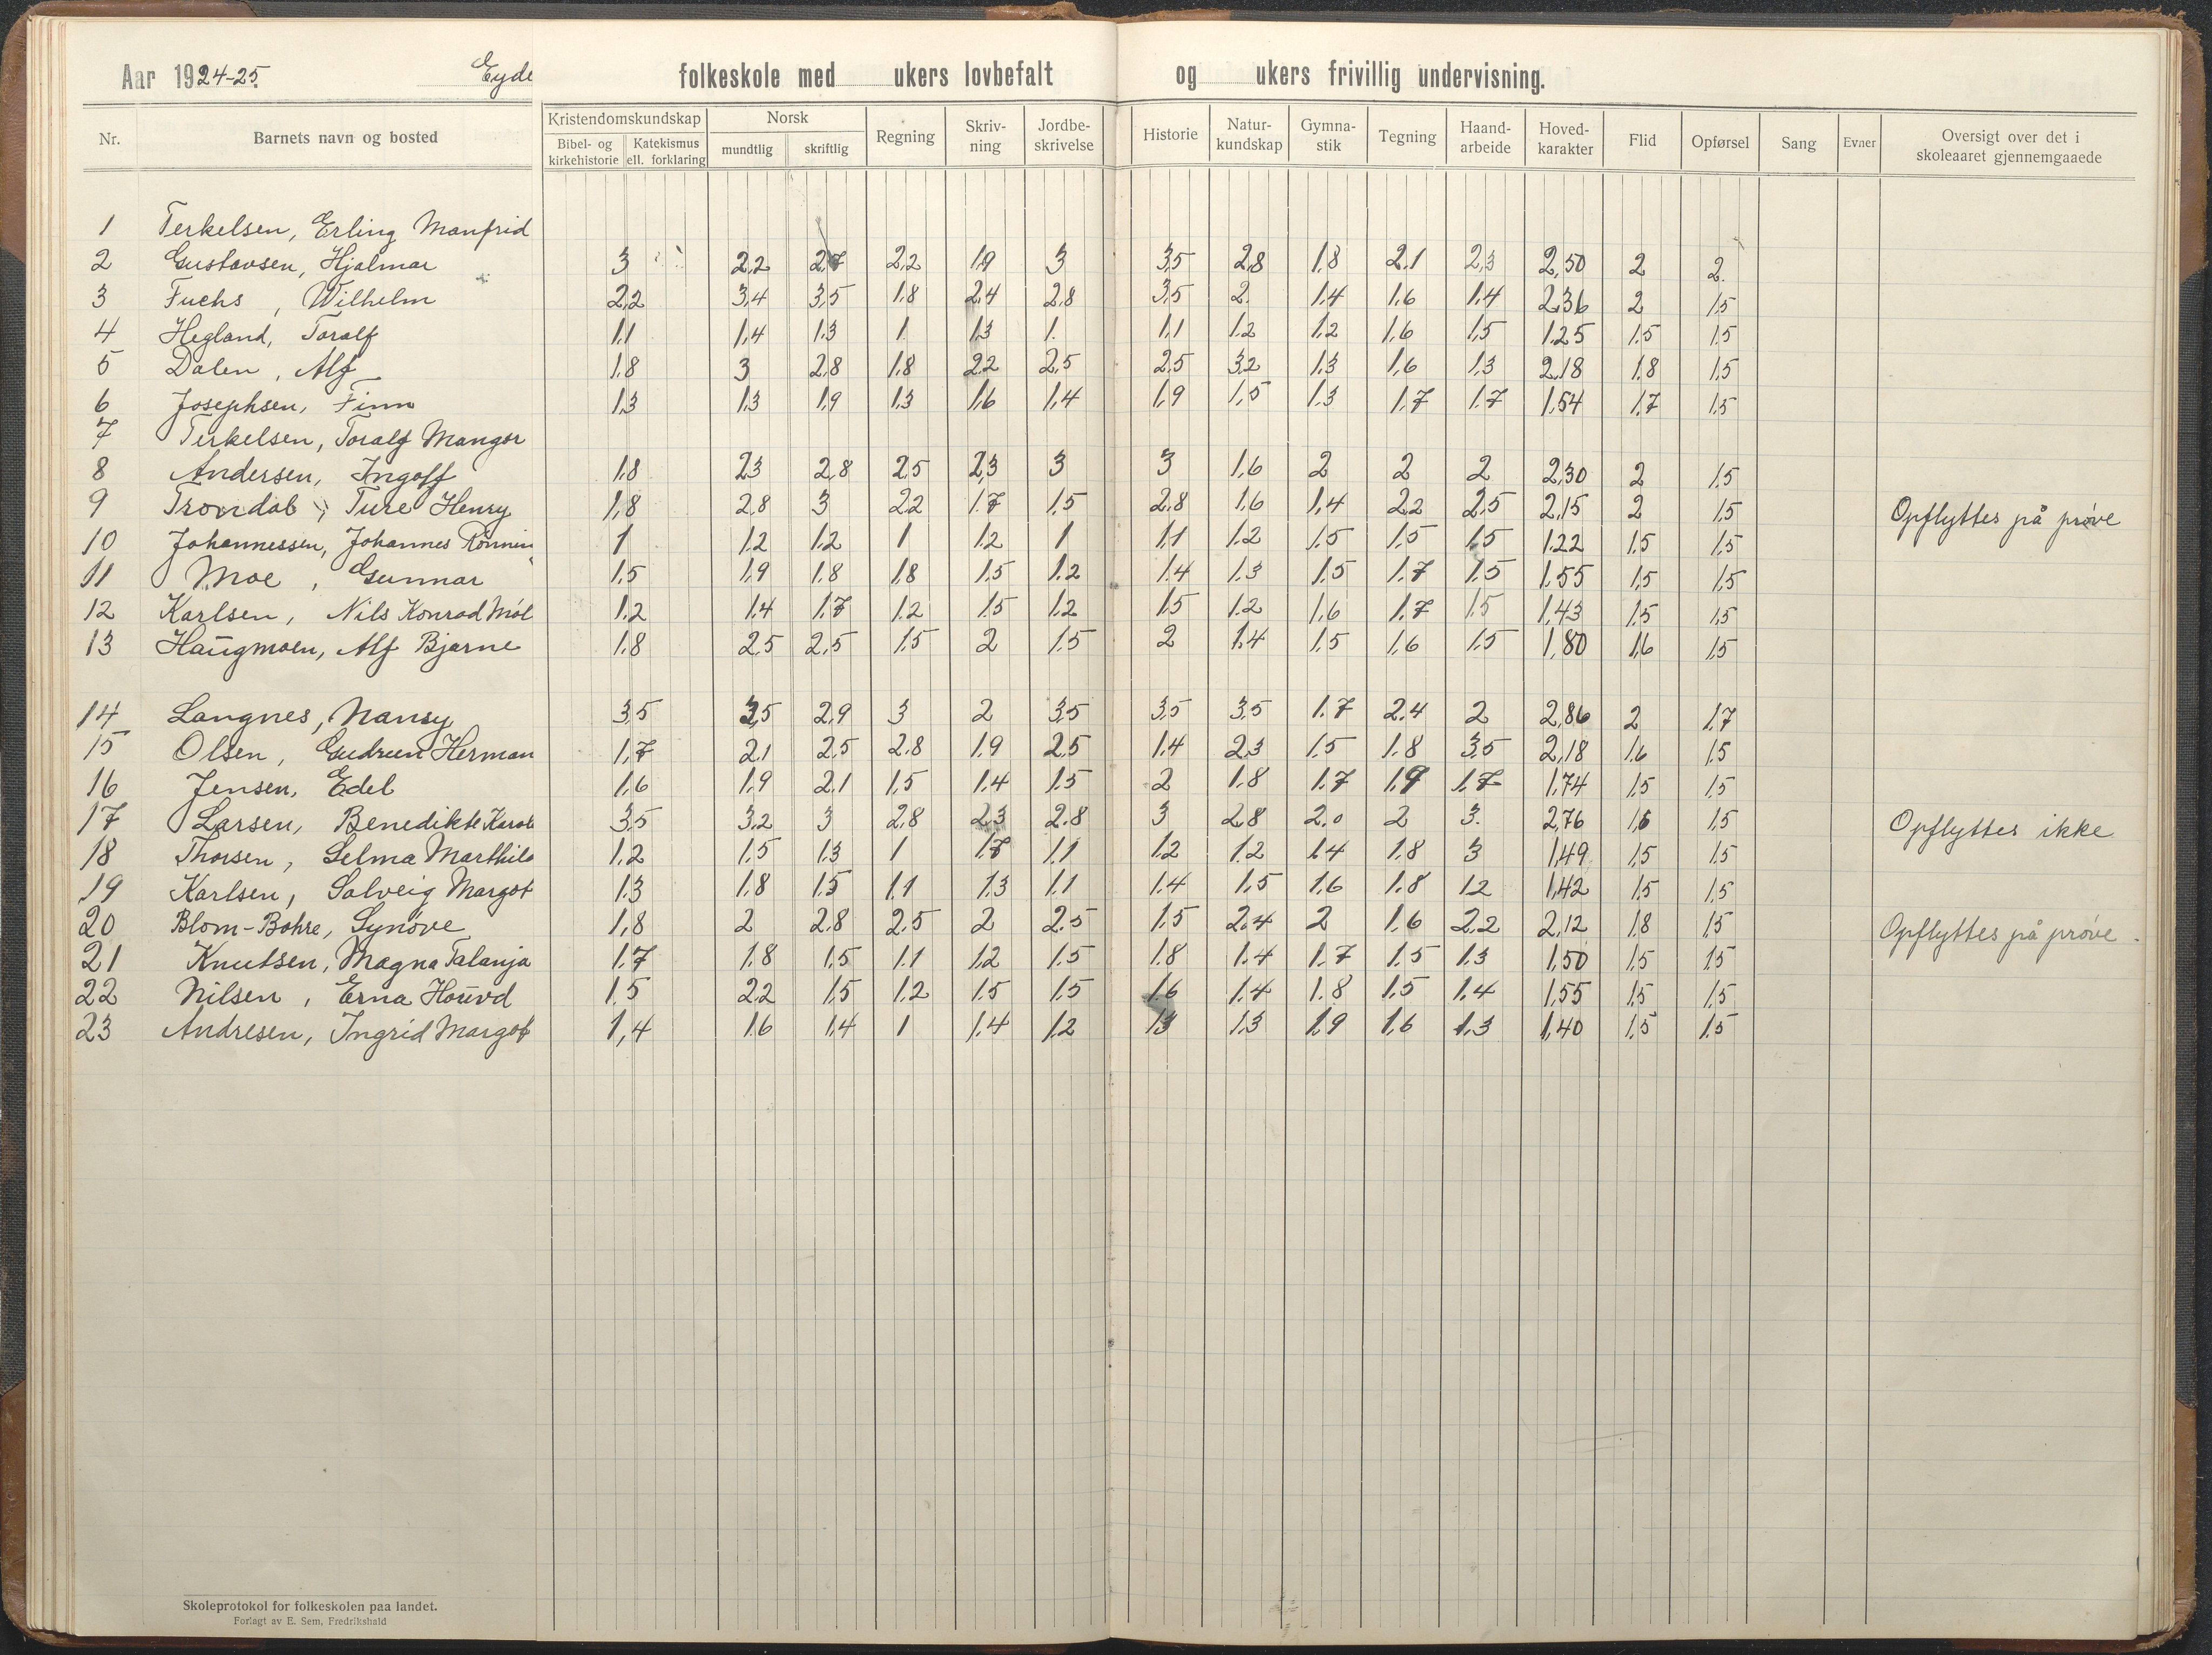 Aar 1924-25. Eyde folkeskole med ukers lovbefalt og ukers frivillig undervisning.
Nr. Barnets navn og bosted Kristendomskundskap Bibel- og kirkehistorie Katekismus ell. forklaring Norsk mundtlig skriftlig Regning Skriv-ning Jordbe-skrivelse Historie Natur-kundskap Gymna-stik Tegning Haand-arbeide Hoved-karakter Flid Opførsel Sang Evner Oversigt over det i skoleaaret gjennemgaaede
1 Terkelsen, Erling Manfrid
2 Gustavsen, Hjalmar 3 2,2 2,7 2,2 1,9 3 3,5 2,8 1,8 2,1 2,3 2,50 2 2.
3 Fuchs, Wilhelm 2,2 3,4 3,5 1,8 2,4 2,8 3,5 2. 1,4 1,6 1,4 2,36 2 1,5
4 Hegland, Toralf 1,1 1,4 1,3 1 1,3 1. 1,1 1,2 1,2 1,6 1,5 1,25 1,5 1,5
5 Dalen, Alf 1,8 3 2,8 1,8 2,2 2,5 2,5 3,2 1,3 1,6 1,3 2,18 1,8 1,5
6 Josephsen, Finn 1,3 1,3 1,9 1,3 1,6 1,4 1,9 1,5 1,3 1,7 1,7 1,54 1,7 1,5
7 Terkelsen, Toralf Mangor
8 Andersen, Ingolf 1,8 2,3 2,8 2,5 2,3 3 3 1,6 2 2 2 2,30 2 1,5
9 Trondal, Ture Henry 1,8 2,8 3 2,2 1,7 1,5 2,8 1,6 1,4 2,2 2,5 2,15 2 1,5 Opflyttes på prøve
10 Johannessen, Johannes Rönnin 1 1,2 1,2 1 1,2 1 1,1 1,2 1,5 1,5 1,5 1,22 1,5 1,5
11 Moe, Gunnar 1,5 1,9 1,8 1,8 1,5 1,2 1,4 1,3 1,5 1,7 1,5 1,55 1,5 1,5
12 Karlsen, Nils Konrad Möl 1,2 1,4 1,7 1,2 1,5 1,2 1,5 1,2 1,6 1,7 1,5 1,43 1,5 1,5
13 Haugmoen, Alf Bjarne 1,8 2,5 2,5 1,5 2 1,5 2 1,4 1,5 1,6 1,5 1,80 1,6 1,5
14 Langnes, Nansy 3,5 3,5 2,9 3 2 3,5 3,5 3,5 1,7 2,4 2 2,86 2 1,7
15 Olsen, Gudrun Herman 1,7 2,1 2,5 2,8 1,9 2,5 1,4 2,3 1,5 1,8 3,5 2,18 1,6 1,5
16 Jensen, Edel 1,6 1,9 2,1 1,5 1,4 1,5 2 1,8 1,7 1,9 1,7 1,74 1,5 1,5
17 Larsen, Benedikte Karol 3,5 3,2 3 2,8 2,3 2,8 3 2,8 2,0 2 3. 2,76 1,6 1,5 Opflyttes ikke
18 Thorsen, Selma Marthil 1,2 1,5 1,3 1 1,7 1,1 1,2 1,2 1,4 1,8 3 1,49 1,5 1,5
19 Karlsen, Solveig Margot 1,3 1,8 1,5 1,1 1,3 1,1 1,4 1,5 1,6 1,8 1,2 1,42 1,5 1,5
20 Blom-Bohre, Synöve 1,8 2 2,8 2,5 2 2,5 1,5 2,4 2 1,6 2,2 2,12 1,8 1,5 Opflyttes på prøve.
21 Knutsen, Magna Talanja 1,7 1,8 1,5 1,1 1,2 1,5 1,8 1,4 1,7 1,5 1,3 1,50 1,5 1,5
22 Nilsen, Erna Houvd 1,5 2,2 1,5 1,2 1,5 1,5 1,6 1,4 1,8 1,5 1,4 1,55 1,5 1,5
23 Andresen, Ingrid Margot 1,4 1,6 1,4 1 1,4 1,2 1,3 1,3 1,9 1,6 1,3 1,40 1,5 1,5
Skoleprotokol for folkeskolen paa landet.
Forlagt av E. Sem, Fredrikshald